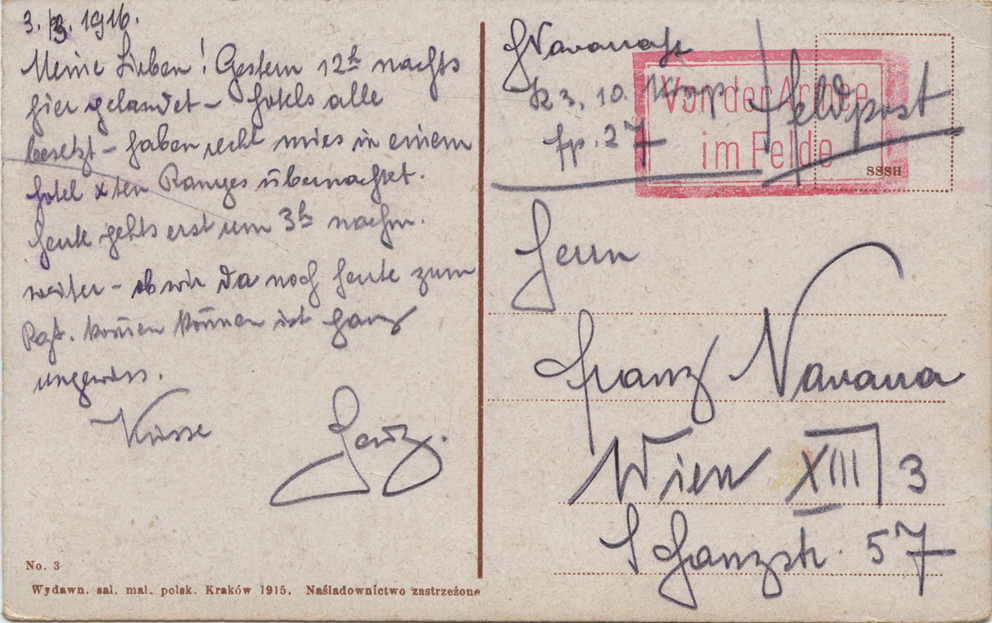 3. 3. 1916.
Meine Lieben! Gestern 12h nachts
hier gelandet – Hotels alle
besetzt – haben recht mies in einem
Hotel xten Ranges übernachtet.
Heute gehts erst um 3h nachm.
weiter – ob wir da noch heute zum
Rgt. können ist ganz
ungewiss.
Küsse
No. 3
Wydawn. sal. mal. polsk. Kraków 1915. Naśladownictwo zastrzeżone
Navarra
10.
fp. 27
Feldpost
Von der Armee
im Felde
SSSH
Herrn
Franz Navarra
Wien XIII 3
57